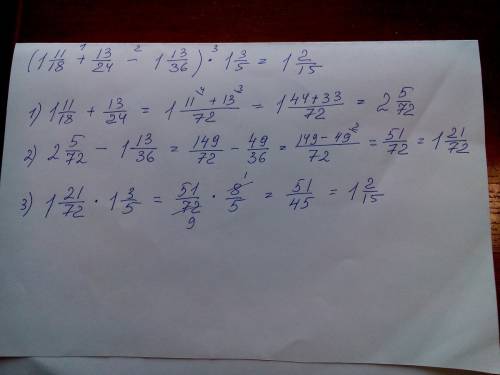 (1 11/18 +¹ 13/24 −² 1 13/36) ·³ 1 3/5 = 1 2/15
1) 1 11/18 + 13/24 = 1 (11⁴ + 13³)/72 = 1 (44+33)/72 = 2 5/72
2) 2 5/72 − 1 13/36 = 149/72 − 49/36 = (149 − 49²)/72 = 51/72 = 1 21/72
3) 1 21/72 · 1 3/5 = 51/72 9 · 8 1/5 = 51/45 = 1 2/15